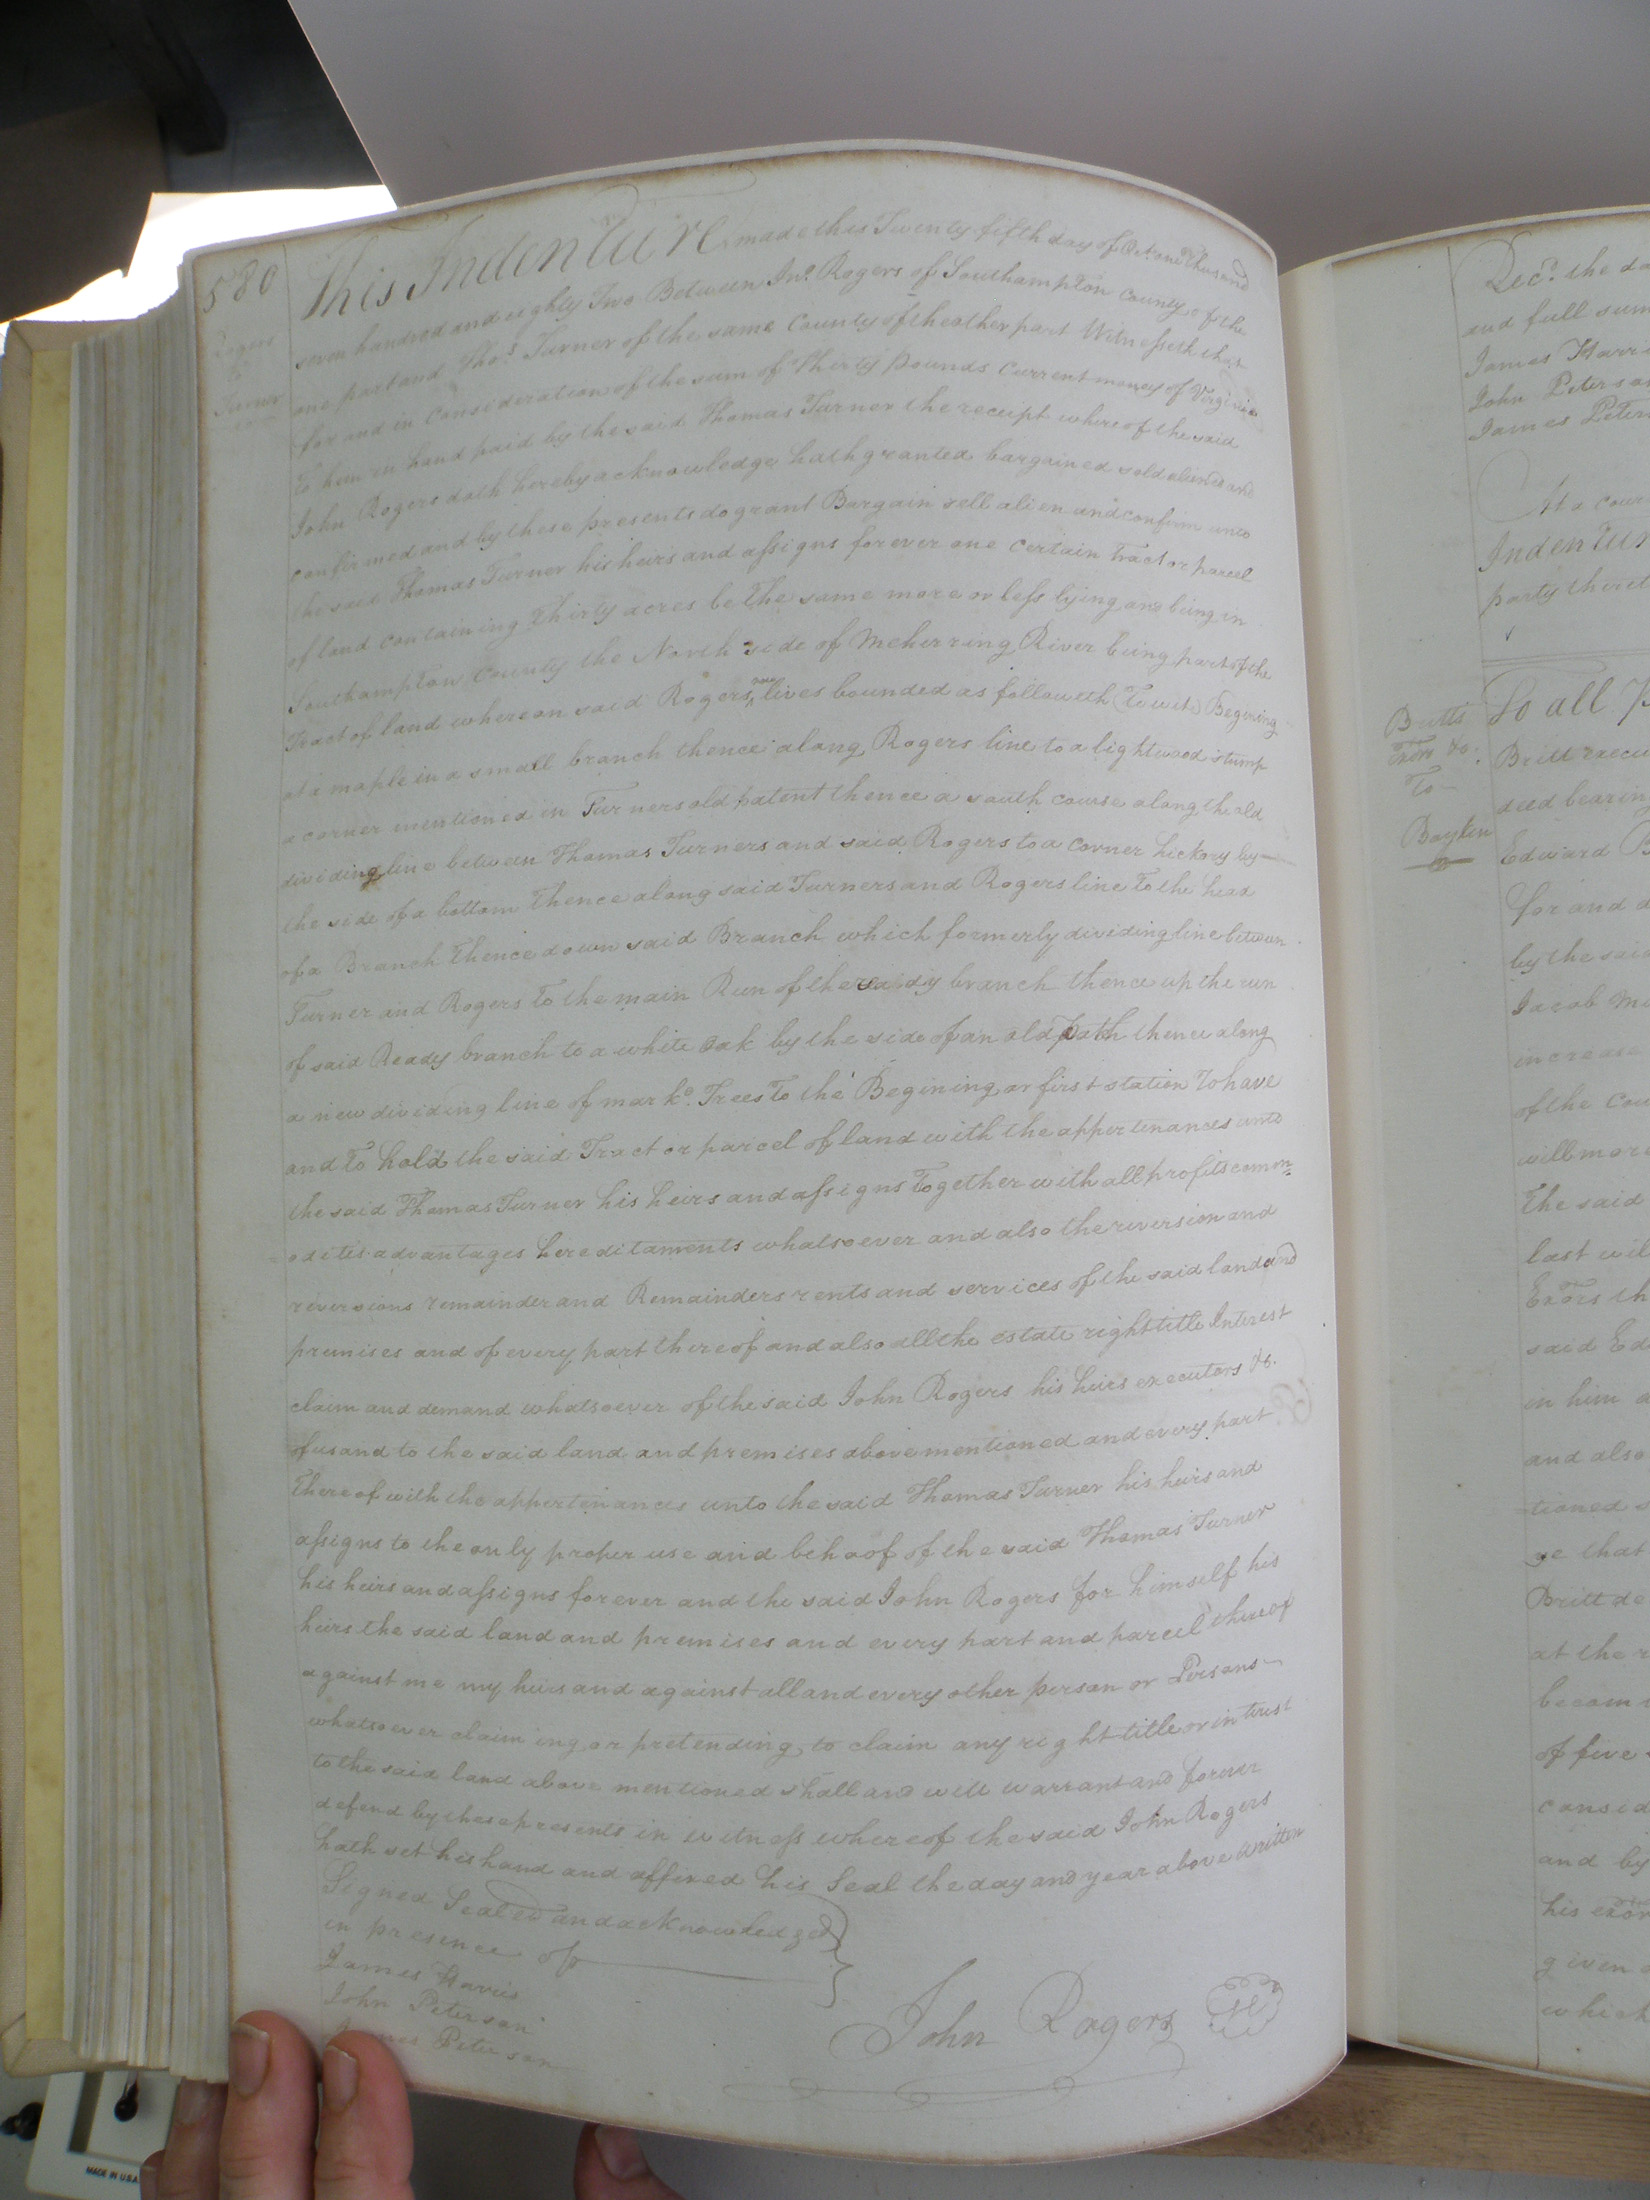 580
Rogers
to
Turner
This Indenture made this Twenty fifth day of Oct. one Thousand
seven hundred and eighty Two Between Jno. Rogers of Southampton County of the
one part and Thos. Turner of the same County of the other part Witnesseth that
for and in Consideration of the sum of Thirty Pounds Current money of Virginia
to him in hand paid by the said Thomas Turner the receipt whereof the said
John Rogers doth hereby acknowledge hath granted bargained sold aliened and
confirmed and by these presents do grant Bargain sell alien and confirm unto
the said Thomas Turner his heirs and assigns forever one certain Tract or parcel
of land containing Thirty acres be the same more or less lying and being in
Southampton County the North side of Meherring River being part of the
Tract of land whereon said Rogers now lives bounded as followeth (To wit) Begining
at a maple in a small branch thence along Rogers line to a lightwood stump
a corner mentioned in Turners old patent thence a south course along the old
dividing line between Thomas Turners and said Rogers to a corner hickory by
the side of a bottom Thence along said Turners and Rogers line to the head
of a Branch Thence down said Branch which formerly dividing line between
Turner and Rogers To the main Run of the branch thence up the run
of said Ready branch to a white Oak by the side of an old path thence along
a new dividing line of markd. Trees To the Begining or first station To have
and To hold the said Tract or parcel of land with the appertenances unto
the said Thomas Turner his heirs and assigns Together with all profits comon=
odities advantages hereditaments whatsoever and also the reversion and
reversions remainder and Remainders rents and services of the said land and
premises and of every part thereof and also all the estate right title Interest
claim and demand whatsoever of the said John Rogers his heirs executors &c.
of us and to the said land and premises above mentioned and every part
thereof with the appertenances unto the said Thomas Turner his heirs and
assigns to the only proper use and behoof of the said Thomas Turner
his heirs and assigns forever and the said John Rogers for himself his
heirs the said land and premises and every part and parcel thereof
against me my heirs and against all and every other person or Persons
whatsoever claiming or pretending to claim any right title or interest
to the said land above mentioned shall and will warrant and forever
defend by these presents in witness whereof the said John Rogers
hath set his hand and affixed his Seal the day and year above written
Signed Sealed and acknowledged
in presence of
James Harris
John Peterson
James Peterson
John Rogers
Decr. the da
and full sum
James Harri
John Peterso
James Peter
At a cour
Indentur
party there
Britts
Exors &c.
To
Boykin
To all P
Britt execu
deed bearin
Edward B
for and
by the said
Jacob
increase
of the Cou
will more
the said
last wil
Exors th
said Ed
in him
and also
tioned
ge that
Britt do
at the r
becom
of five
consid
and by
his exor
given
which
MADE IN U.S.A.